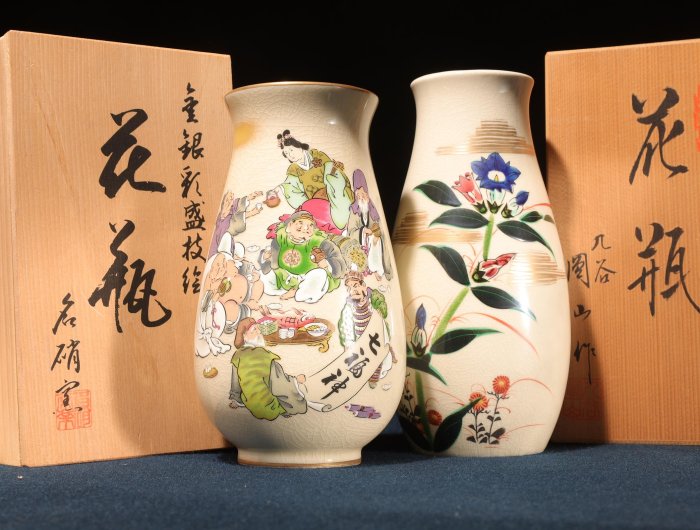 金銀彩盛技絵
花瓶
名硝窯
七福神
花瓶
九谷
関山作